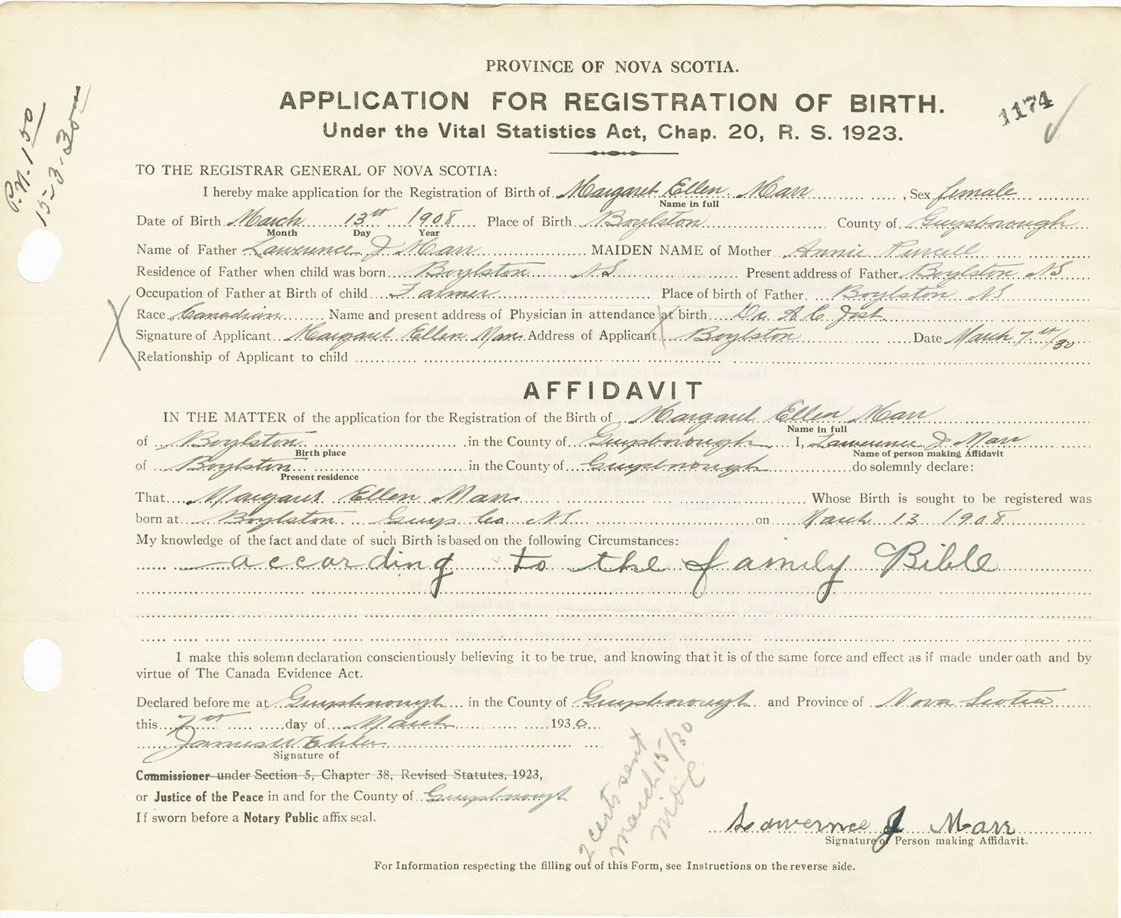 PROVINCE OF NOVA SCOTIA.
APPLICATION FOR REGISTRATION OF BIRTH.
1174
Under the Vital Statistics Act, Chap. 20, R. S. 1923.
P.N. 1.50
15-3-30
TO THE REGISTRAR GENERAL OF NOVA SCOTIA:
I hereby make application for the Registration of Birth of Margaret Ellen Marr, Sex female
Name in full
Date of Birth March 13th 1908 Place of Birth Boylston County of Guysborough
Month Day Year
Name of Father Lawrence J Marr MAIDEN NAME of Mother Annie Purcell
Residence of Father when child was born Boylston NS Present address of Father Boylston NS
Occupation of Father at Birth of child Farmer Place of birth of Father Boylston NS
Race Canadian Name and present address of Physician in attendance at birth Dr. A C Jost
Signature of Applicant Margaret Ellen Marr Address of Applicant Boylston Date March 7th/30
Relationship of Applicant to child
AFFIDAVIT
IN THE MATTER of the application for the Registration of the Birth of Margaret Ellen Marr
Name in full
of Boylston in the County of Guysborough I, Lawrence J Marr
Birth place Name of person making Affidavit
of Boylston in the County of Guysborough do solemnly declare:
Present residence
That Margaret Ellen Marr Whose Birth is sought to be registered was
born at Boylston Guys Co NS on March 13 1908
My knowledge of the fact and date of such Birth is based on the following Circumstances:
according to the family Bible
I make this solemn declaration conscientiously believing it to be true, and knowing that it is of the same force and effect as if made under oath and by
virtue of The Canada Evidence Act.
Declared before me at Guysborough in the County of Guysborough and Province of Nova Scotia
this 7th day of March 1930
James W
Signature of
Commissioner under Section 5, Chapter 38, Revised Statutes, 1923,
or Justice of the Peace in and for the County of Guysborough
If sworn before a Notary Public affix seal.
2 certs sent
March 15/30
Lawernce J Marr
Signature of Person making Affidavit.
For Information respecting the filling out of this Form, see Instructions on the reverse side.